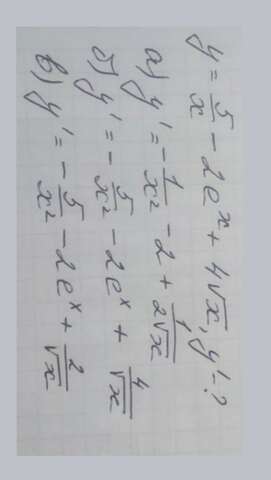 y = 5/x - 2e^x + 4√x, y' - ?
а) y' = - 1/x² - 2 + 1/2√x
б) y' = - 5/x² - 2e^x + 4/√x
в) y' = - 5/x² - 2e^x + 2/√x